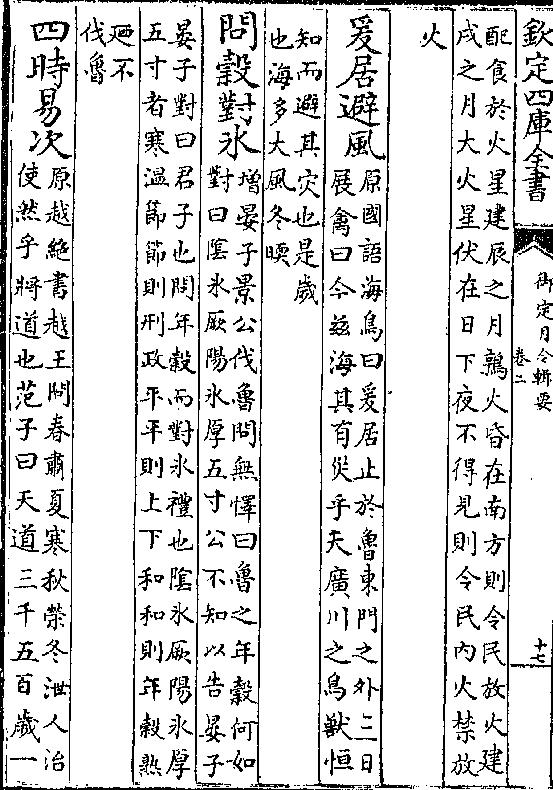 欽定四庫全書
御定月令輯要
卷二
十七
配食於火星建辰之月鶉火昏在南方則令民放火建
戌之月大火星伏在日下夜不得見則令民內火禁放
火
爰居避風
原國語海鳥曰爰居止於魯東門之外二日
展禽曰今兹海其有災乎夫廣川之鳥獸恒
知而避其灾也是歲
也海多大風冬暖
問穀對氷
增晏子景公伐魯問無懌曰魯之年穀何如
對曰隂氷厥陽氷厚五寸公不知以告晏子
晏子對曰君子也問年穀而對氷禮也隂氷厥陽氷厚
五寸者寒溫節節則刑政平平則上下和和則年穀熟
廼不
伐魯
四時易次
原越絶書越王問春肅夏寒秋榮冬泄人治
使然乎將道也范子曰天道三千五百歲一